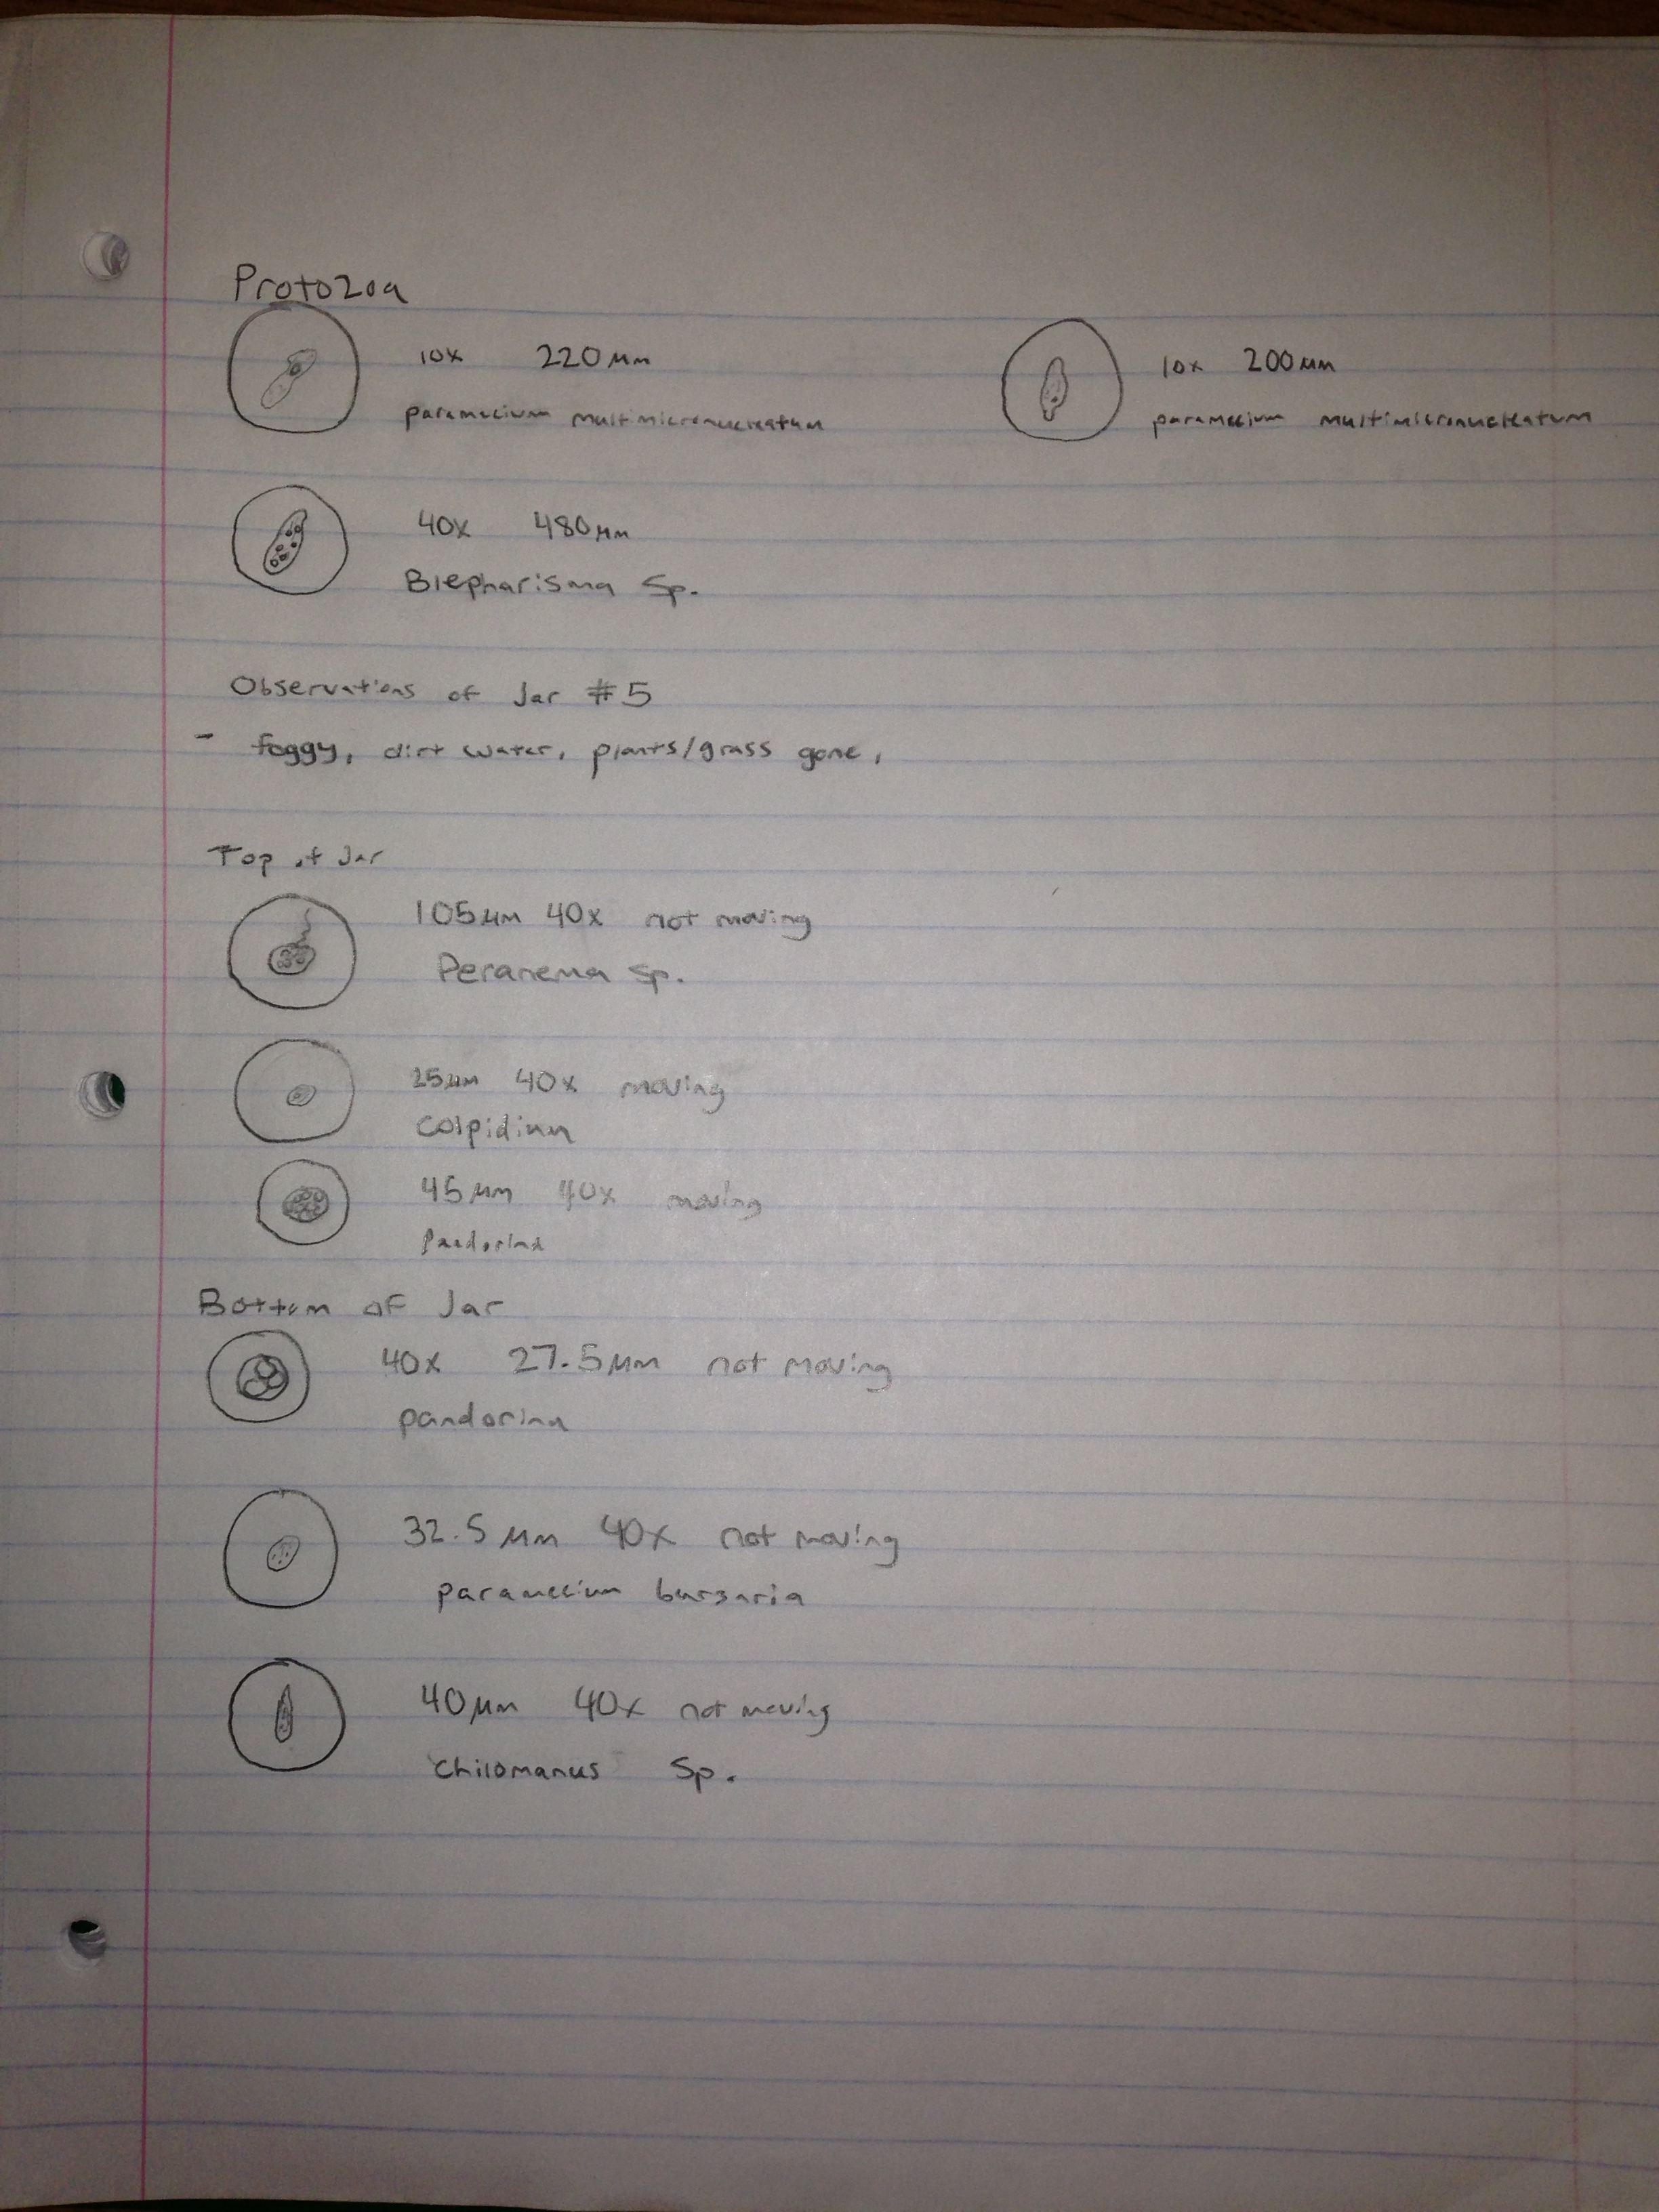 Protozoa
10x 220μm
paramecium multimicronucleatum
10x 200μm
paramecium multimicronucleatum
40x 480μm
Blepharisma Sp.
Observations of Jar #5
- foggy, dirt water, plants/grass gone,
Top of Jar
105μm 40x not moving
Peranema sp.
25μm 40x moving
Colpidium
45μm 40x moving
Pandorina
Bottom of Jar
40x 27.5μm not moving
pandorina
32.5μm 40x not moving
paramecium bursaria
40μm 40x not moving
Chilomanus Sp.